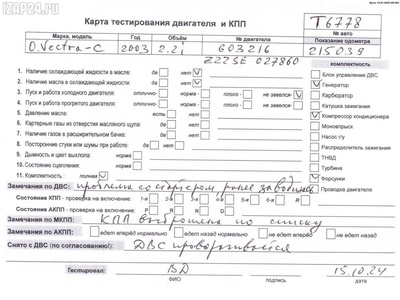 IZAP24.RU
Карта тестирования двигателя и КПП
T6778
Марка, модель Год Объём № двигателя № авто
O.Vectra-C 2003 2.2i 603216 Показание одометра
Z22SE 027860 215039
комплектность
1. Наличие охлаждающей жидкости в масле: да нет V Блок управления ДВС
2. Наличие масла в охлаждающей жидкости: да нет V Генератор
3. Пуск и работа холодного двигателя: отлично- норма - плохо - не завелся - V Карбюратор
4. Пуск и работа прогретого двигателя: отлично- норма - плохо - Катушка зажигания
5. Давление масла: есть нет Компрессор кондиционера
6. Картерные газы из отверстия масляного щупа: да нет Моновпрыск
7. Наличие газов в расширительном бачке: да нет Насос г/у
8. Посторонние стуки или шумы при работе: да нет Распределитель зажигания
9. Дымность и цвет выхлопа: норма - ТНВД
10. Состояние сцепления: норма - Турбина
11. Комплектность: полная V Форсунки
Замечания по ДВС: проблема со стартером, ранее заводился Проводка двигателя
Состояние КПП - проверка на включение: 1-я 2-я 3-я 4-я 5-я R
Состояние АКПП - проверка на включение: P N D R
Замечания по МКПП: КПП выброшена по списку
Замечания по АКПП: едет вперёд нормально едет назад нормально не едет вперёд не едет назад
Снято с ДВС (по согласованию!): ДВС проворачивается
Тестировал: ВД 15.10.24
ФИО подпись дата